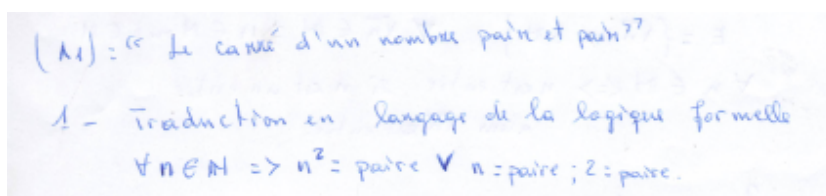 (A1) : " Le carré d'un nombre paire et pair"
1 - Traduction en langage de la logique formelle
∀n∈N => n² = paire ∨ n = paire ; 2 = paire.